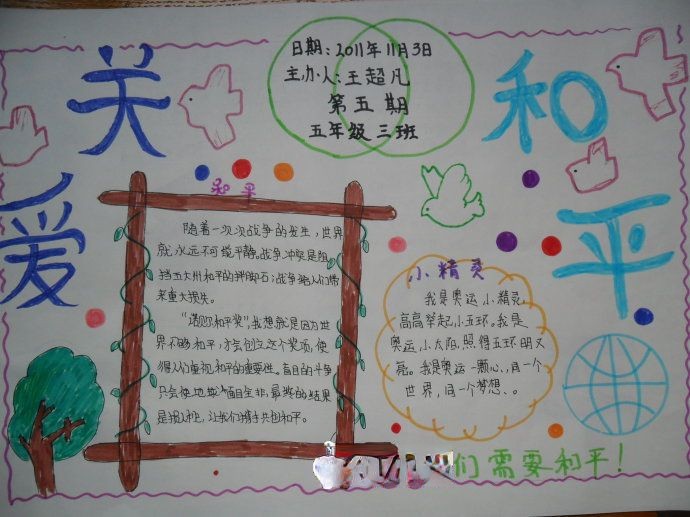 关爱
和平
日期:2011年11月3日
主办人:王超凡
第五期
五年级三班
和平
随着一次次战争的发生,世界
就永远不可能平静。战争冲突是阻
挡五大州和平的拌脚石;战争给人们带
来重大损失。
“诺贝尔和平奖”,我想就是因为世
界不够和平,才会创立这个奖项,使
得人们重视和平的重要性。盲目的斗争
只会使地球面目全非,最终的结果
是,让我们携手共创和平。
小精灵
我是奥运小精灵,
高高举起小五环。我是
奥运小太阳,照得五环明又
亮。我是奥运一颗心,同一个
世界,同一个梦想、。
们需要和平!